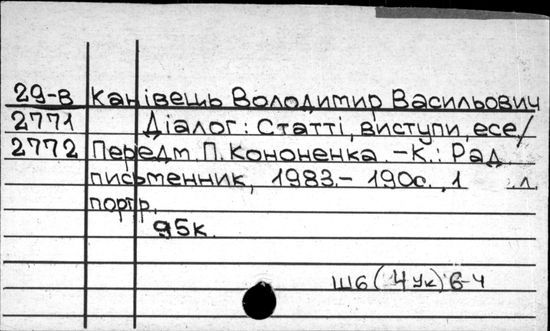 29-в Канівець Володимир Васильович
2771 Діалог: Статті, виступи, есе/
2772 Передм. П. Кононенка. – К.: Рад.
письменник, 1983. – 190с., 1 л.
портр.
95к.
Ш6(4Ук)6-4